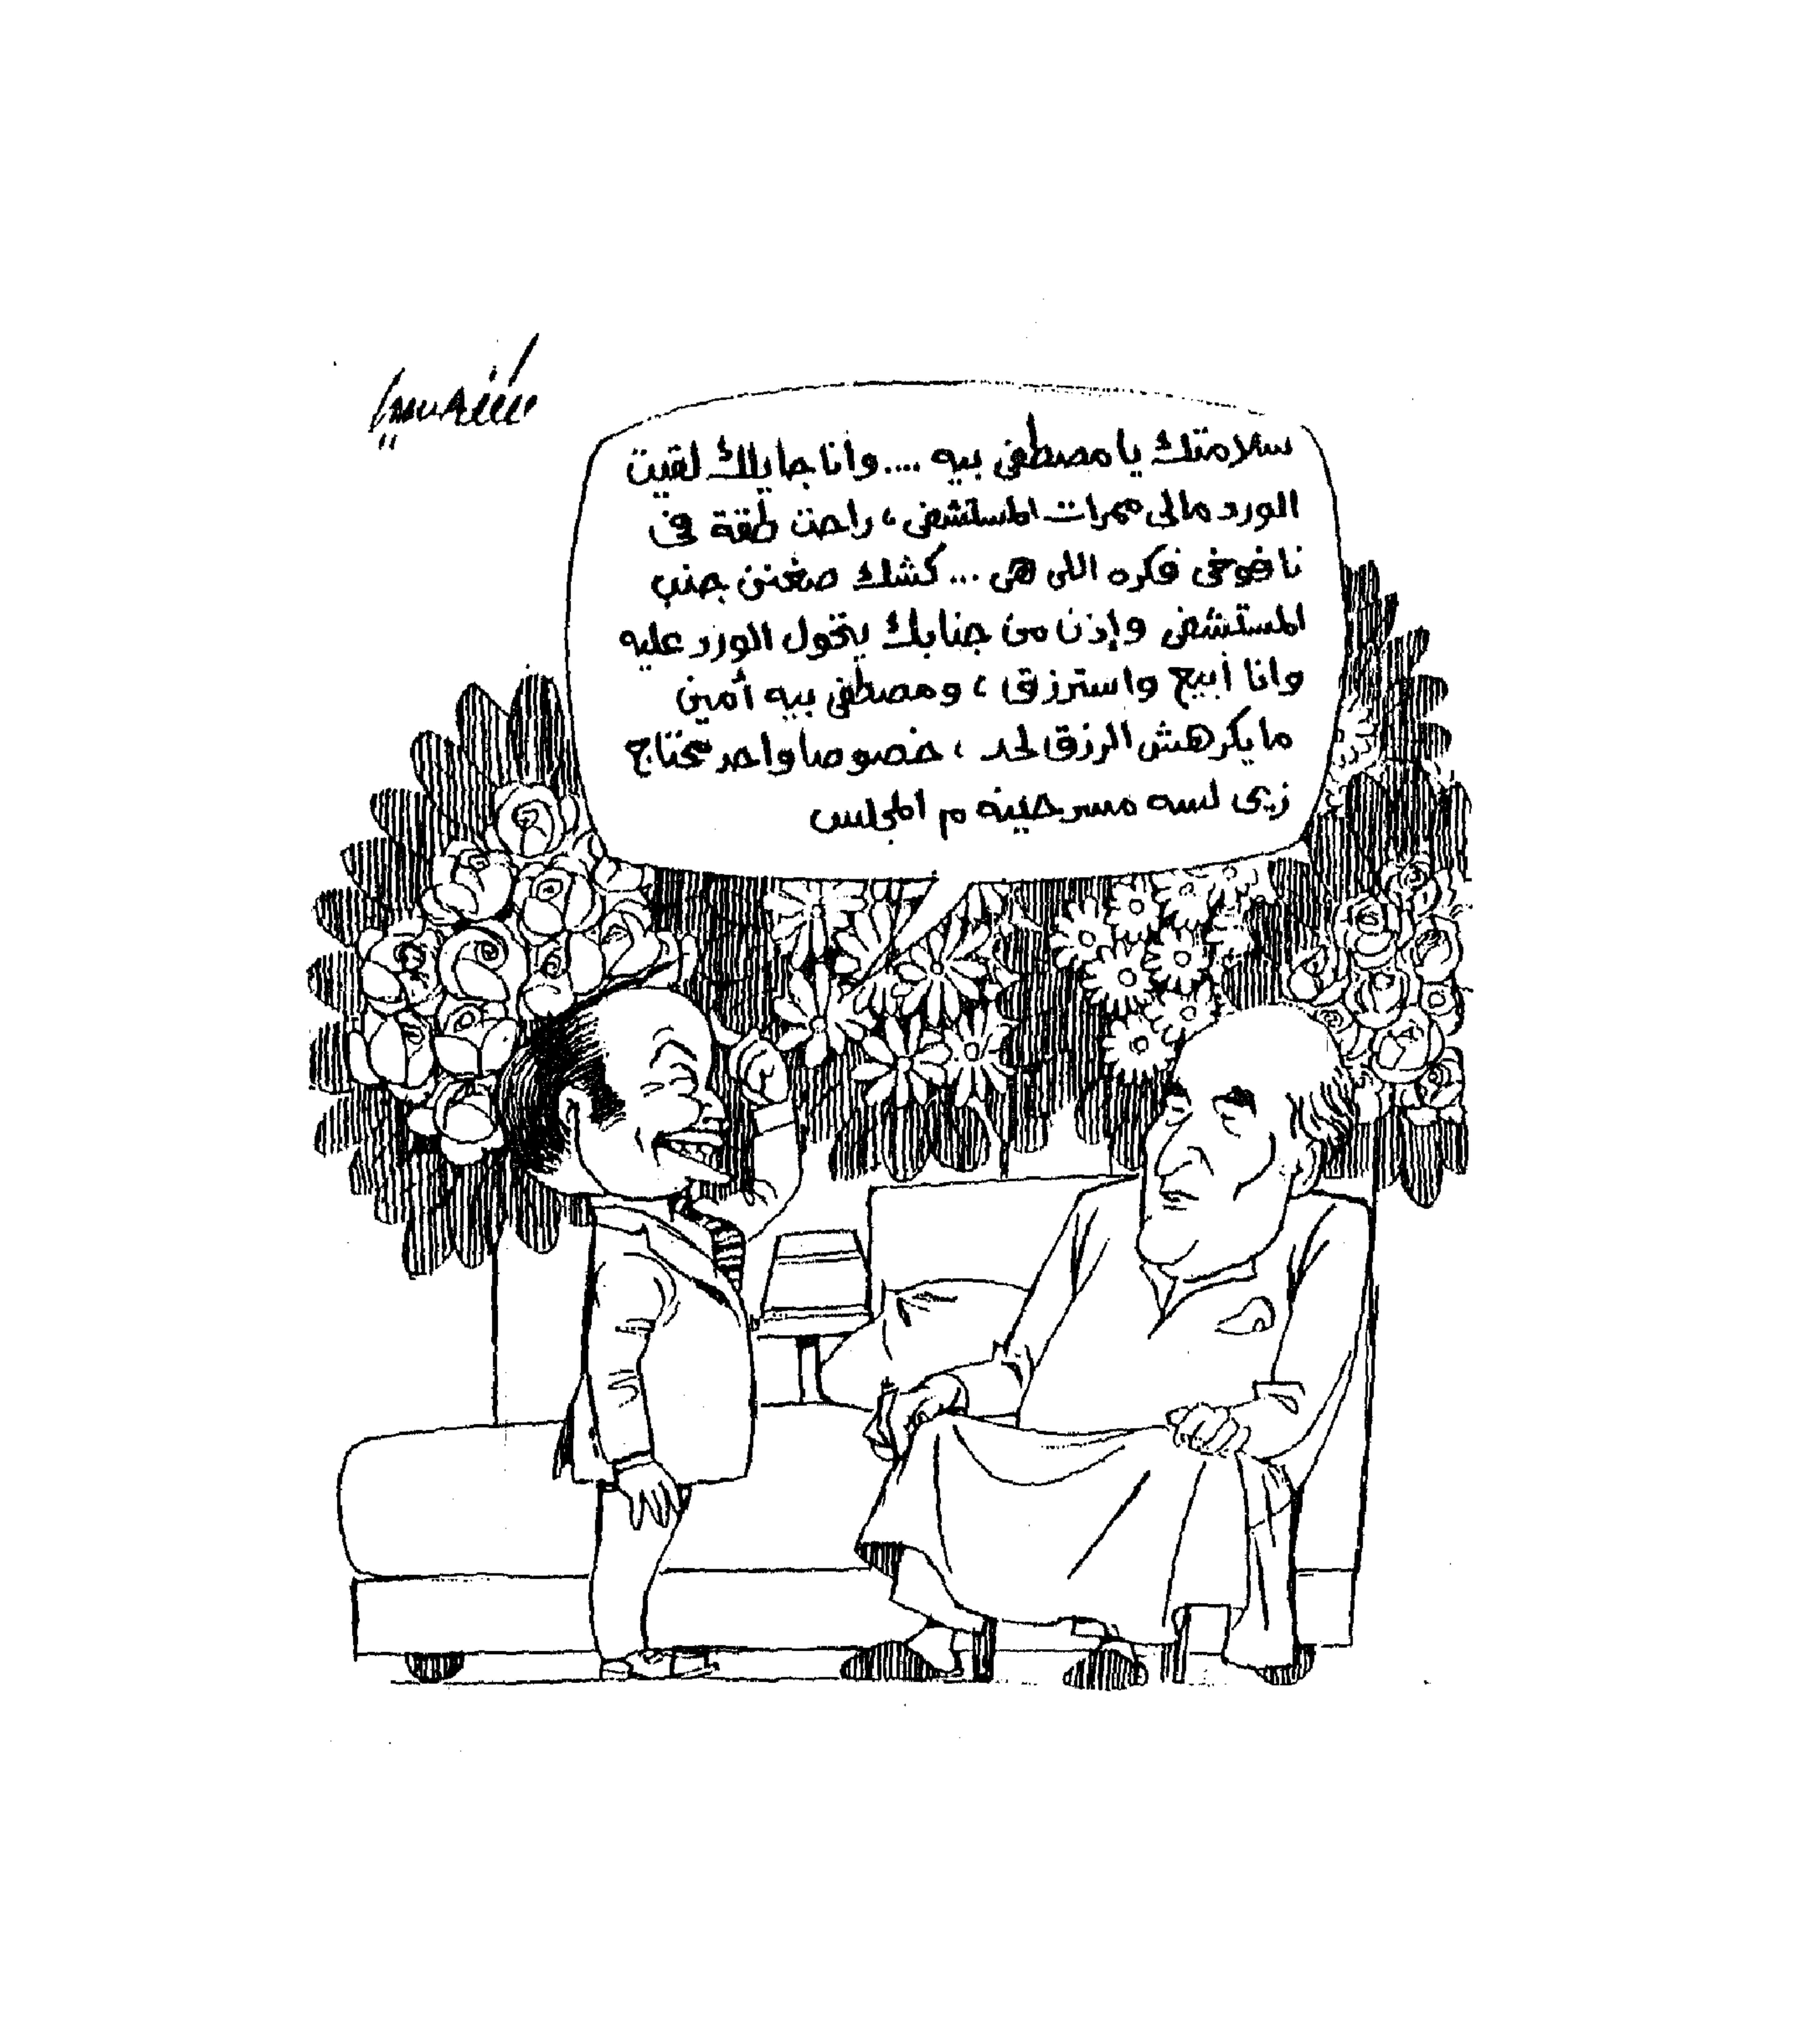 سلامتك يا مصطفى بيه .... وأنا جايلك لقيت
الورد مالى ممرات المستشفى، راحت طقة فى
نافوخى فكره اللى هى ... كشك صغنن جنب
المستشفى وإذن من جنابك يتحول الورد عليه
وانا أبيع واسترزق، ومصطفى بيه أمين
مايكرهش الرزق لحد، خصوصا واحد محتاج
زيى لسه مسرحينه م المجلس